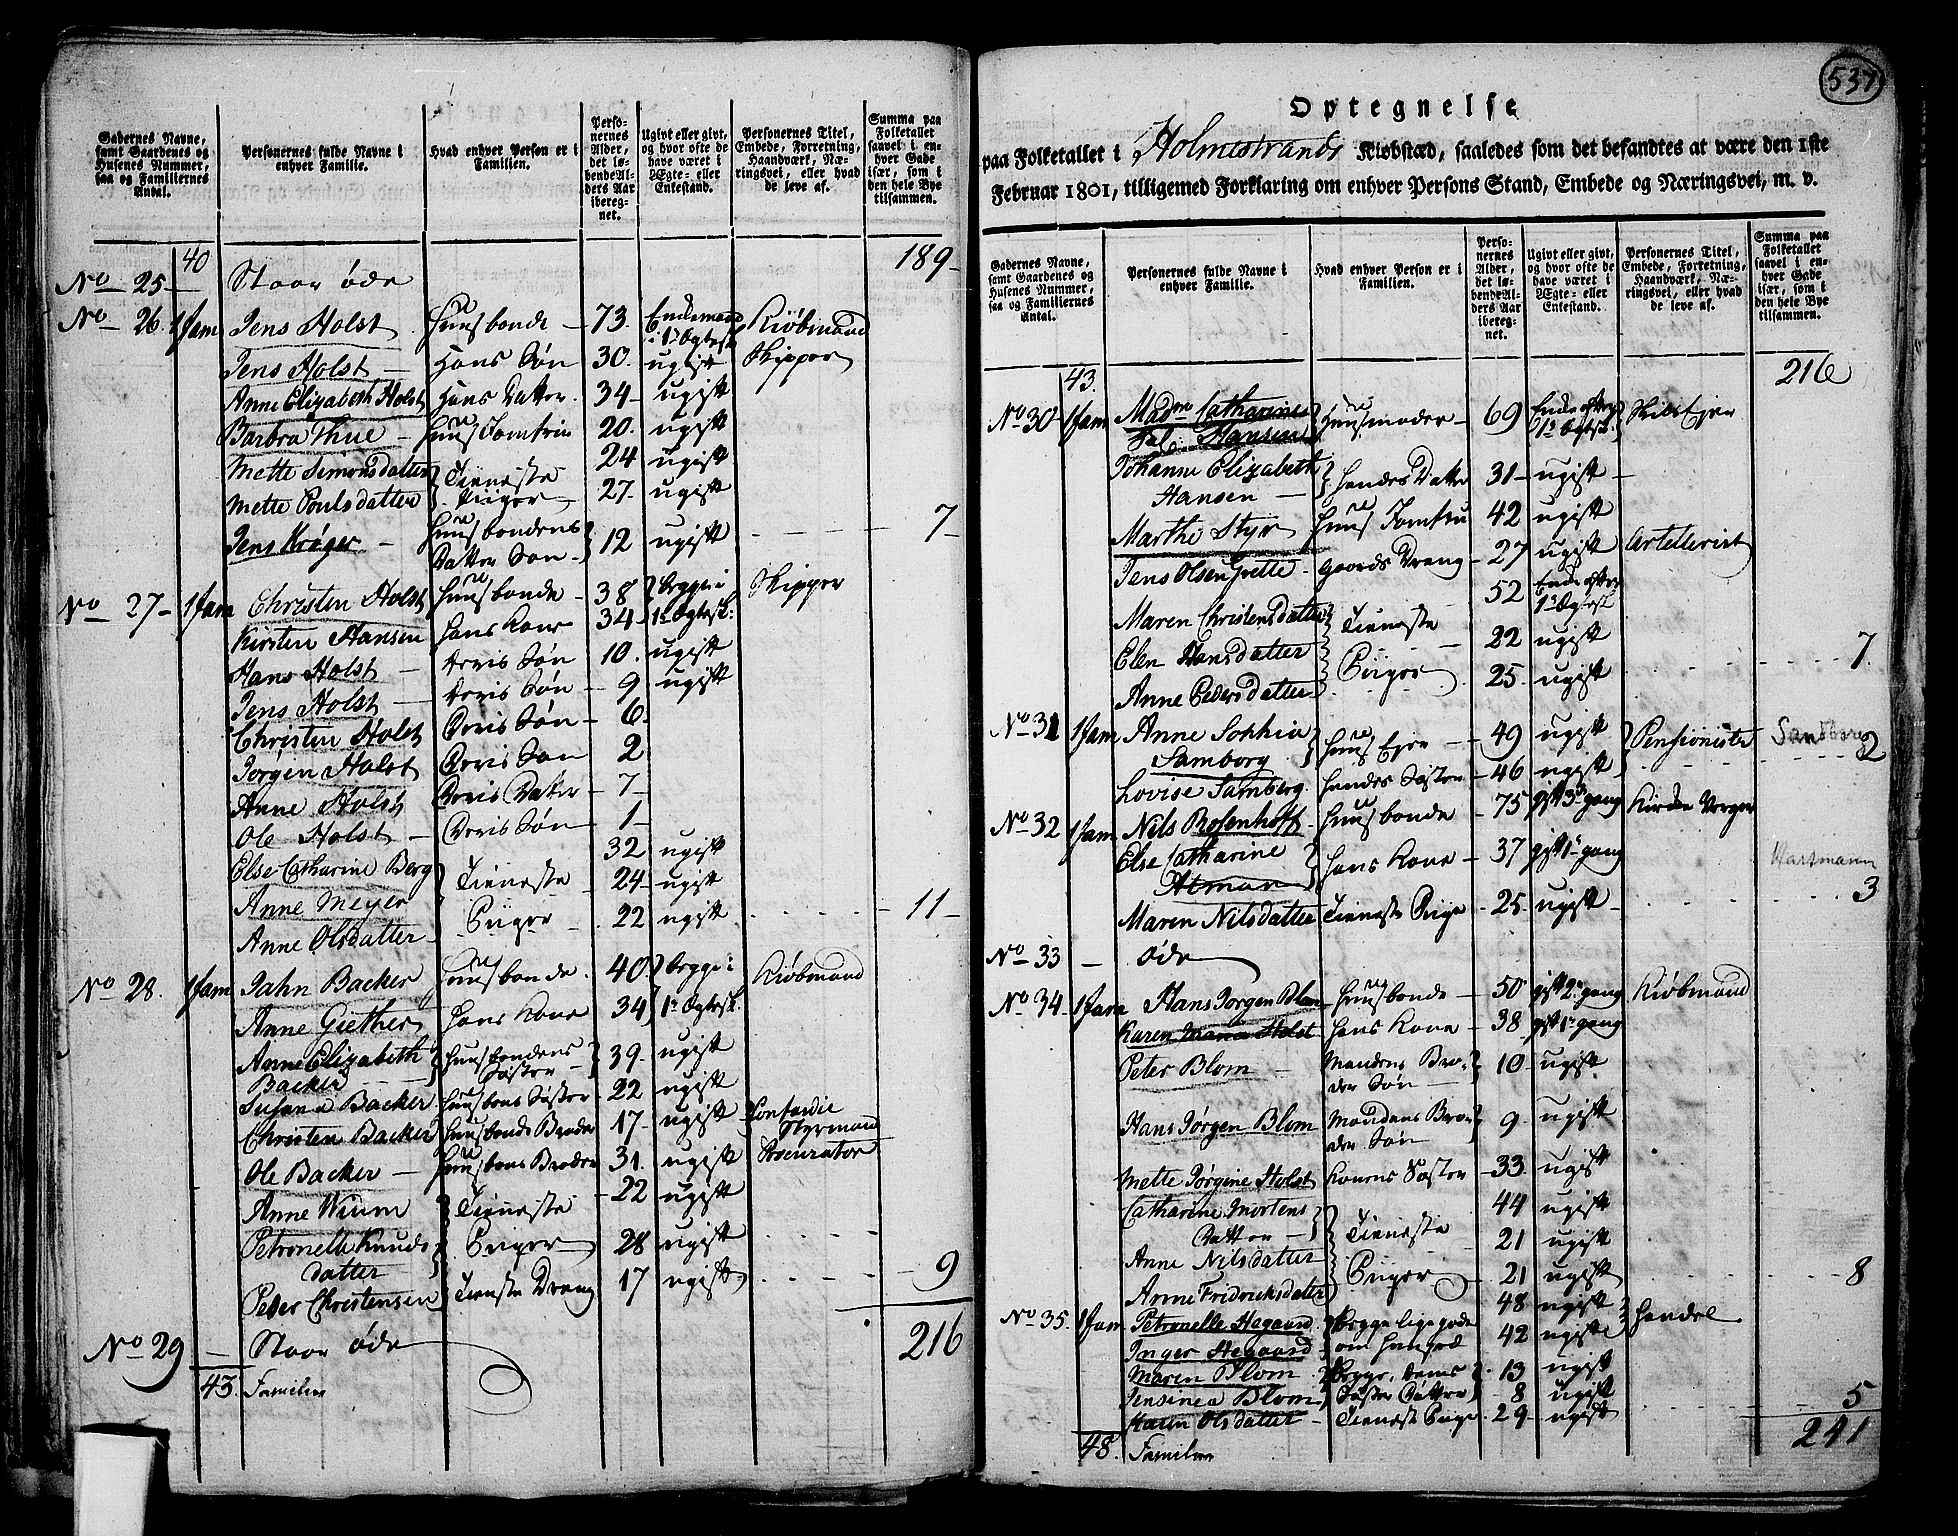 Gadernes Navne, samt Gaardenes og Husenes Nummer, saa og Familiernes Antal.
Personernes fulde Navne i enhver Familie.
Hvad enhver Person er i Familien.
Personernes Alder, det løbende Alders Aar iberegnet.
Ugivt eller givt, og hvor ofte de have været i Ægte- eller Enkestand.
Personernes Titel, Embede, Forretning, Haandværk, Næringsvei, eller hvad de leve af.
Summa paa Folketallet saavel i enhver Gade især, som i den hele Bye tilsammen.
40 189
No 25 Staar øde
No 26 1 fam Jens Holst Huusbonde 73 Enkemand i 1te Ægtesk Kiöbmand
Jens Holst Hans Søn 30 ugift Skipper
Anne Elizabeth Holst Hans Datter 34 ugift
Barbra Thue Huus Jomfrue 20 ugift
Mette Simonsdatter Tieneste 24 ugift
Mette Poulsdatter Piiger 27 ugift
Jens Krøger Huusbondens Datter Søn 12 ugift 7
No 27 1 fam Christen Holst Huusbonde 38 begge i Skipper
Kirsten Hansen Hans Kone 34 1te Ægtesk:
Hans Holst Deris Søn 10 ugift
Jens Holst Deris Søn 9 ugift
Christen Holst Deris Søn 6
Jørgen Holst Deris Søn 2
Anne Holst Deris Datter 7
Ole Holst Deris Søn 1
Else Catharine Berg 32 ugift
Anne Meyer Tieneste 24 ugift
Anne Olsdatter Piiger 22 ugift 11
No 28 1 fam Jahn Backer Huusbonde 40 begge i Kiöbmand
Anne Giether Hans Kone 34 1te Ægtesk
Anne Elizabeth Backer Huusbondens Søster 39 ugift
Susana Backer Huusbons Søster 22 ugift
Christen Backer Huusbonds Broder 17 ugift Confardie Styrmand
Ole Backer Huusbons Broder 31 ugift Procurator
Anne Wium Tieneste 22 ugift
Petronelle Knudsdatter Piiger 28 ugift
Peder Christensen Tieneste Dreng 17 ugift 9
No 29 Staar øde 216
43 Familier
537
Optegnelse
paa Folketallet i Holmestrands Kiøbstæd, saaledes som det befandtes at være den 1ste
Februar 1801, tilligemed Forklaring om enhver Persons Stand, Embede og Næringsvei, m. v.
Gadernes Navne, samt Gaardenes og Husenes Nummer, saa og Familiernes Antal.
Personernes fulde Navne i enhver Familie.
Hvad enhver Person er i Familien.
Personernes Alder, det løbende Alders Aar iberegnet.
Ugivt eller givt, og hvor ofte de have været i Ægte- eller Enkestand.
Personernes Titel, Embede, Forretning, Haandværk, Næringsvei, eller hvad de leve af.
Summa paa Folketallet saavel i enhver Gade især, som i den hele Bye tilsammen.
43 216
No 30 1 fam Madme Catharine Sal: Hansen Huusmoder 69 Enke efter 1te Ægtesk. Skibs Ejer
Johanne Elizabeth Hansen Hendes Datter 31 ugift
Marthe Styr Huus Jomfru 42 ugift
Jens Olsen Grette Gaards Dreng 27 ugift Artellerist
Maren Christensdatter Tieneste 52 Enke efter 1te Ægtesk
Elen Hansdatter Piiger 22 ugift
Anne Pedersdatter 25 ugift 7
No 31 1 fam Anne Sophia Samborg Huus Ejer 49 ugift Pensionister Sandborg
Lovise Samberg Hendes Søster 46 ugift 2
No 32 1 fam Nils Rosenhoff Huusbonde 75 gift 3die gang Kirke Verger
Else Catharine Atman Hans Kone 37 gift 1te gang Hartmann
Maren Nilsdatter Tieneste Piige 25 ugift 3
No 33 øde
No 34 1 fam Hans Jørgen Blom Huusbonde 50 gift 2den gang Kiöbmand
Karen Maria Holst Hans Kone 38 gift 1te gang
Peter Blom Mandens Broder Søn 10 ugift
Hans Jørgen Blom Mandens Broder Søn 9 ugift
Mette Jørgine Holst Konens Søster 33 ugift
Catharine Mortens Datter Tieneste 44 ugift
Anne Nilsdatter 21 ugift
Anne Fridricksdatter Piiger 21 ugift 8
No 35 1 fam Petronelle Hegaard Begge lige gode 48 ugift Handel
Inger Hegaard om Huuset 42 ugift
Maren Blom Begge deris 13 ugift
Jensinea Blom Søster Døttre 8 ugift
Karen Olsdatter Tieneste Piige 29 ugift 5
48 Familier 241